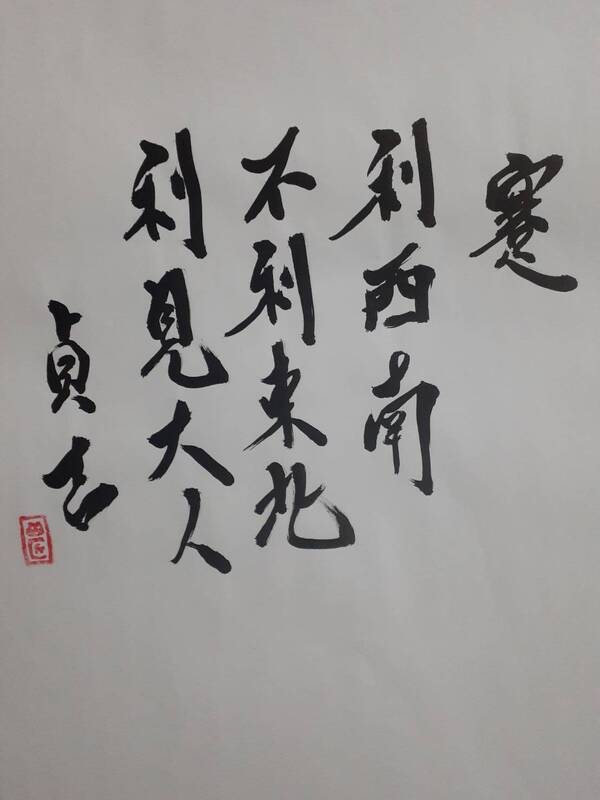 蹇
利西南
不利東北
利見大人
貞吉